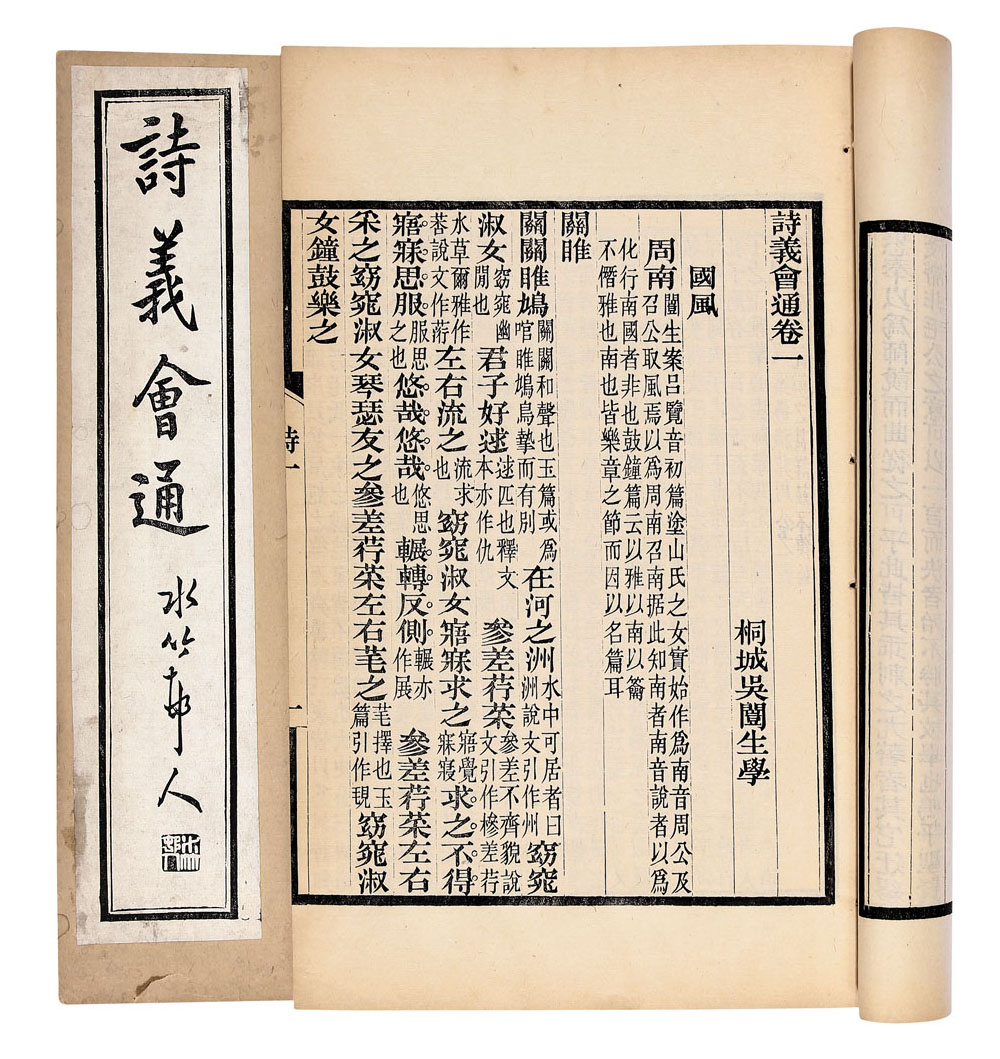 詩義會通
水竹邨人
詩義會通卷一
桐城吳闓生學
國風
周南闓生案呂覽音初篇塗山氏之女實始作爲南音周公及召公取風焉以爲周南召南据此知南者南音說者以爲
化行南國者非也鼓鐘篇云以雅以南以籥不僭雅也南也皆樂章之節而因以名篇耳
關雎
關關雎鳩關關和聲也玉篇或爲雎鳩鳥摯而有別在河之洲水中可居者曰洲說文引作州窈窕
淑女窈窕幽閒也君子好逑逑匹也釋文本亦作仇參差荇菜參差不齊貌說文引作槮差荇
水草爾雅作莕說文作䓷左右流之流求也窈窕淑女寤寐求之寤覺寐寢求之不得
寤寐思服服思之也悠哉悠哉悠思也輾轉反側輾亦作展參差荇菜左右
采之窈窕淑女琴瑟友之參差荇菜左右芼之芼擇也玉篇引作覒窈窕淑
女鐘鼓樂之
詩一
一